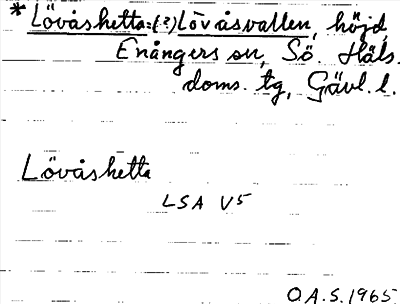 * Lövåshetta=(?) Lövåsvallen, höjd
Enångers sn, Sö. Häls.
doms. tg, Gävl. l.
Lövåshetta
LSA V5
O.A.S. 1965